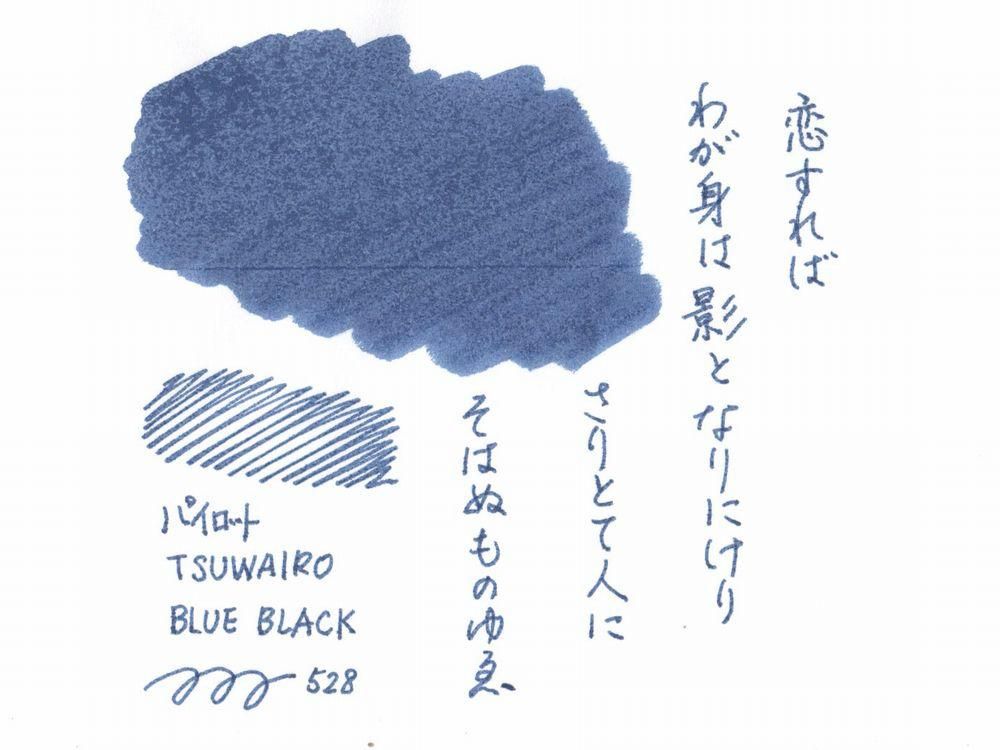 恋すれば
わが身は影となりにけり
さりとて人に
そはぬものゆゑ
パイロット
TSUWAIRO
BLUE BLACK
528